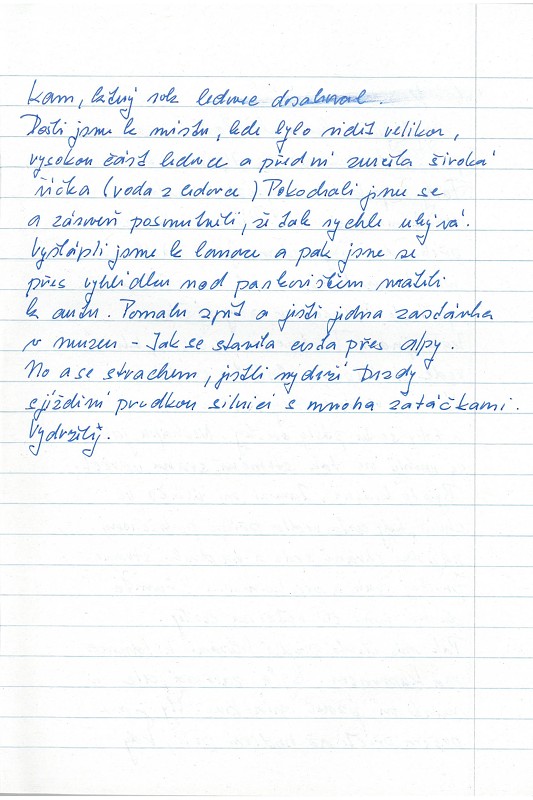 kam, který rok ledovec dosahoval.
Došli jsme k místu, kde bylo vidět velikou,
vysokou část ledovce a před ní zurčila široká
říčka (voda z ledovce) Pokochali jsme se
a zároveň posmutněli, že tak rychle ubývá.
Vyšlápli jsme k lanovce a pak jsme se
přes vyhlídku nad parkovištěm vrátili
k autu. Pomalu zpět a ještě jedna zastávka
v muzeu - Jak se stavěla cesta přes Alpy.
No a se strachem, jestli vydrží brzdy
sjíždění prudkou silnicí s mnoha zatáčkami.
Vydržely.